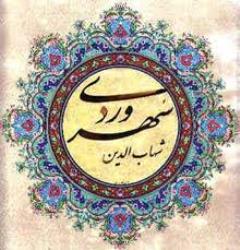 سهروردی
شهاب الدین